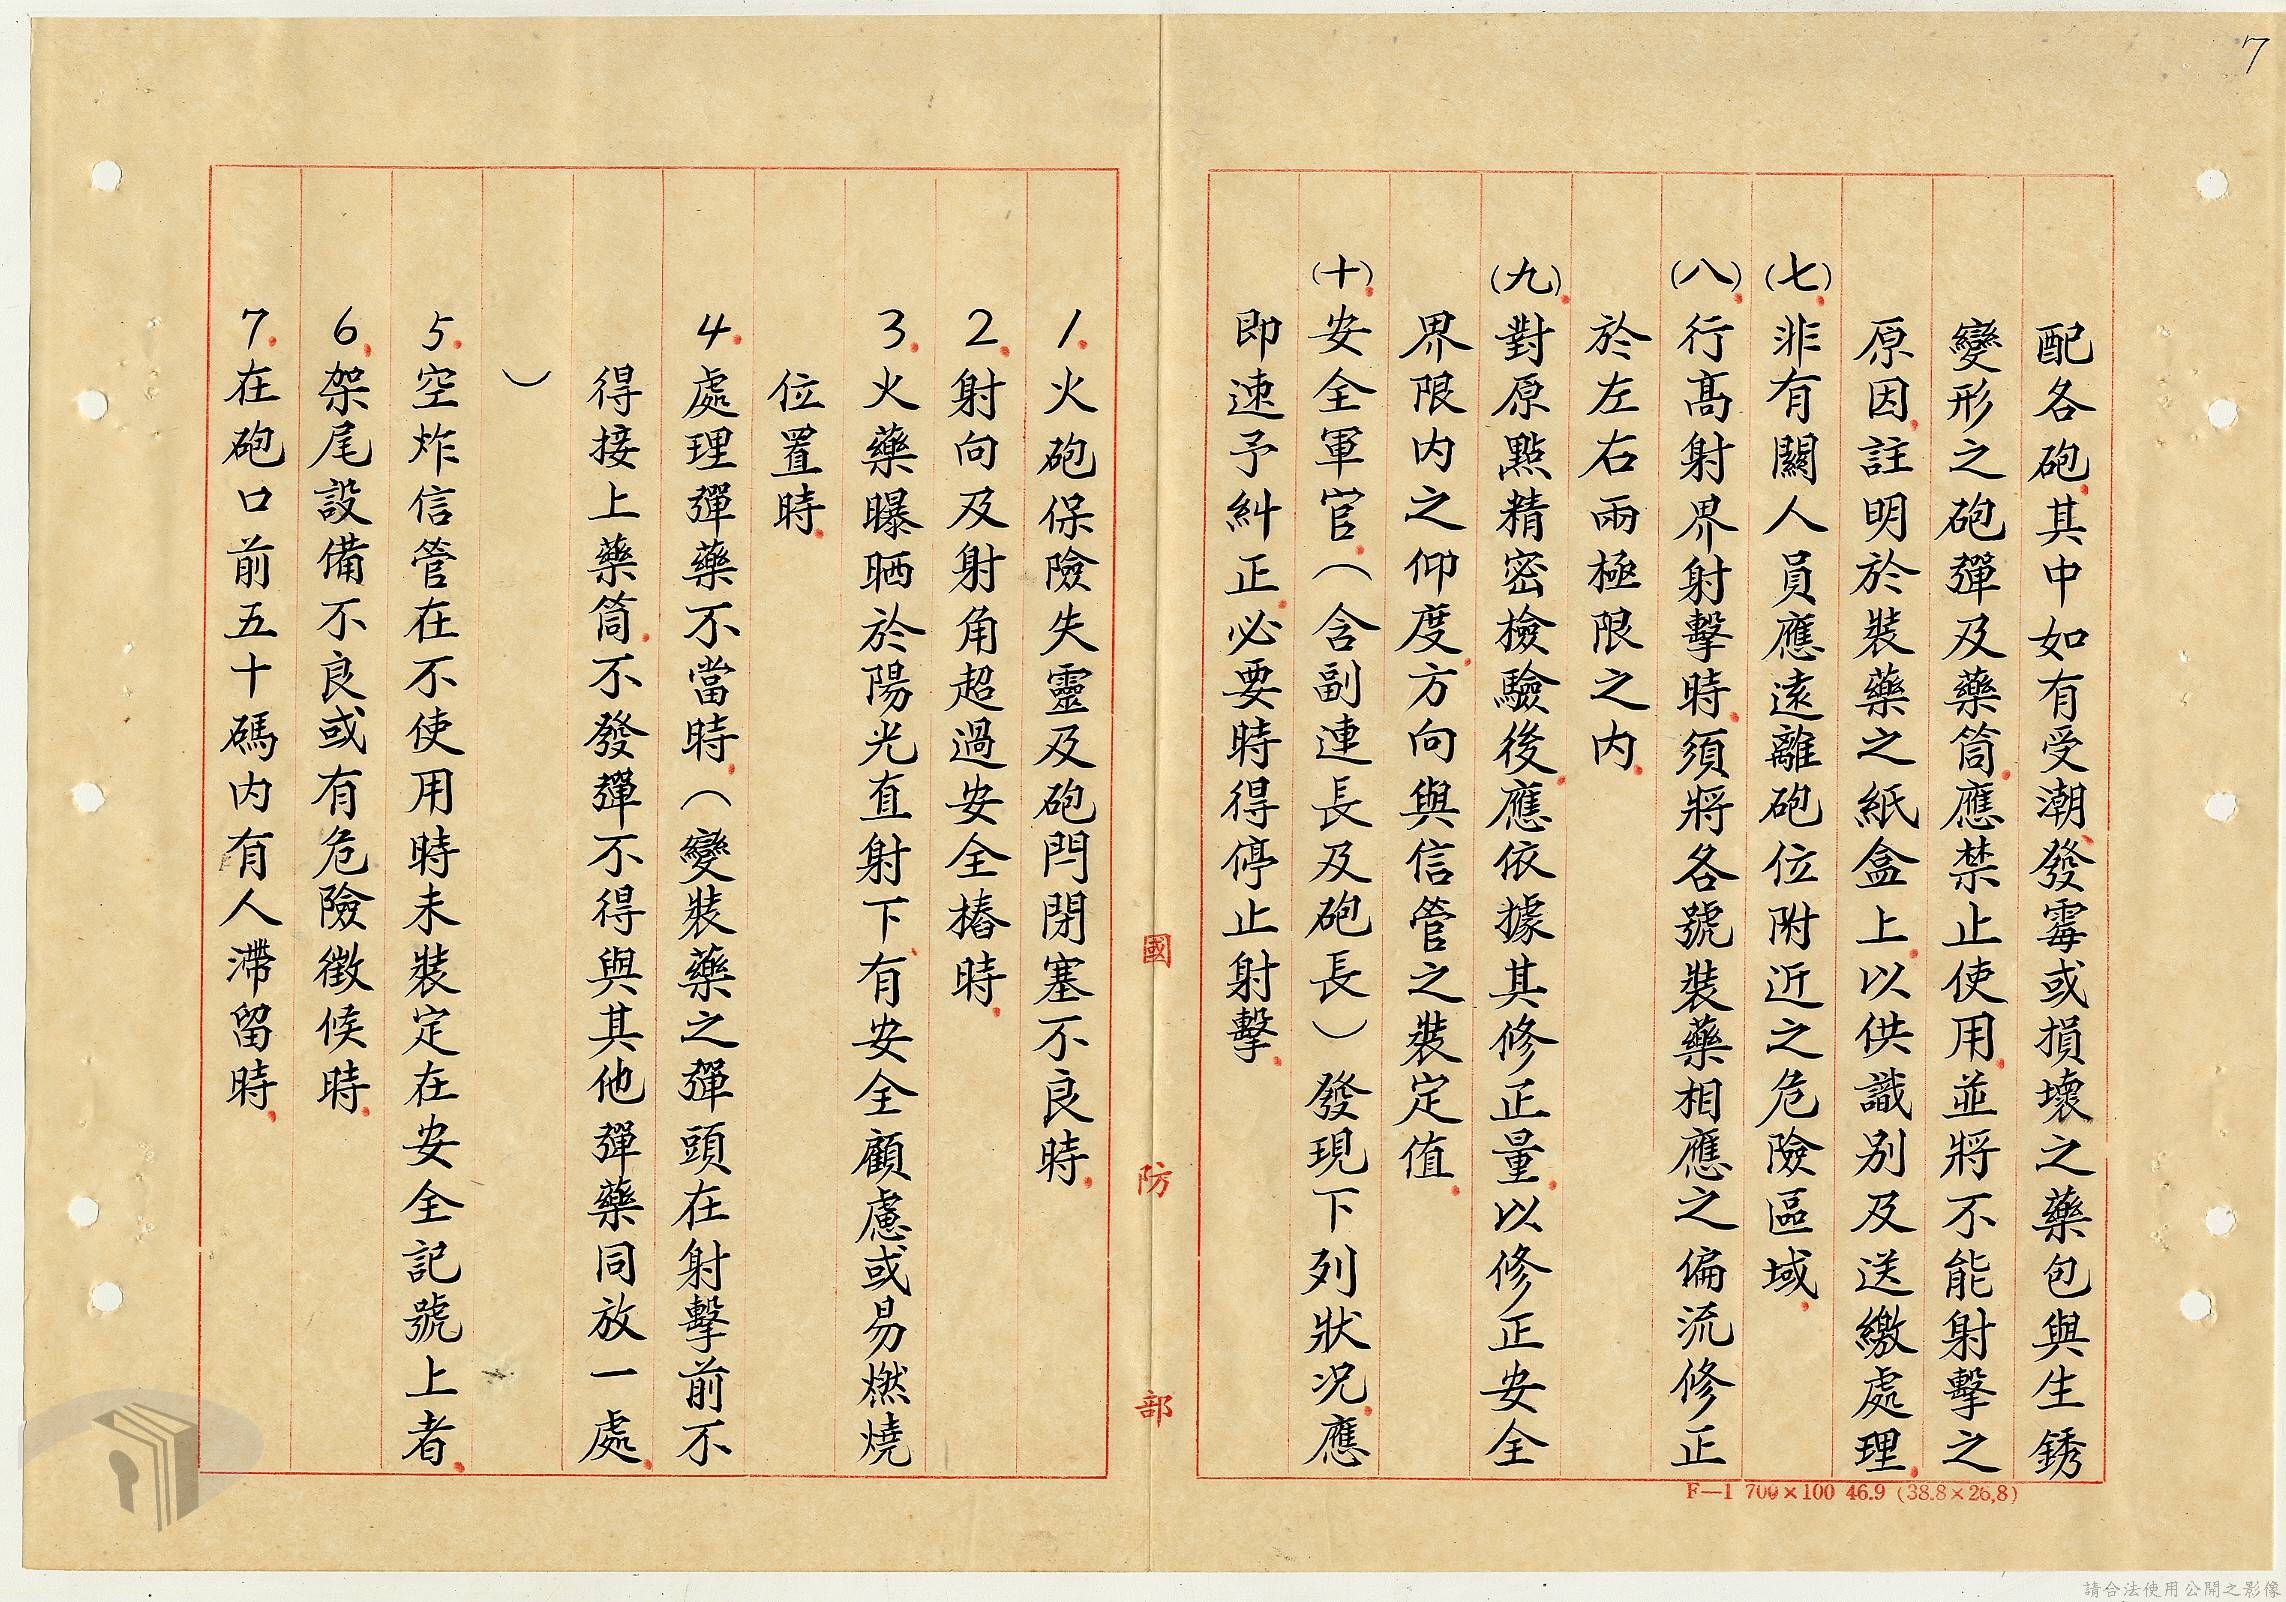 7
配各砲.其中如有受潮.發霉或損壞之藥包與生銹
變形之砲彈及藥筒.應禁止使用.並將不能射擊之
原因.註明於裝藥之紙盒上.以供識別及送繳處理.
(七).非有關人員應遠離砲位附近之危險區域.
(八).行高射界射擊時.須將各號裝藥相應之偏流修正
於左右兩極限之內.
(九).對原點精密檢驗後.應依據其修正量.以修正安全
界限內之仰度.方向與信管之裝定值.
(十).安全軍官.(含副連長及砲長)發現下列狀況.應
即速予糾正.必要時得停止射擊.
1.火砲保險失靈及砲閂閉塞不良時.
2.射向及射角超過安全樁時.
3.火藥曝晒於陽光直射下.有安全顧慮或易燃燒
位置時.
4.處理彈藥不當時.(變裝藥之彈頭在射擊前不
得接上藥筒.不發彈不得與其他彈藥同放一處.
)
5.空炸信管在不使用時未裝定在安全記號上者.
6.架尾設備不良或有危險徵候時.
7.在砲口前五十碼內有人滯留時.
國防部
F—1 700×100 46.9 (38.8×26,8)
請合法使用公開之影像